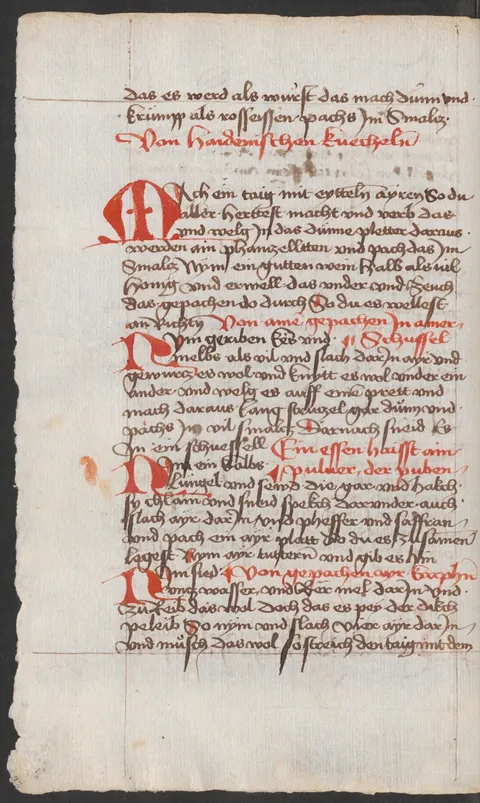 das es werd als wurst das mach dünn vnd
krümpp als rosseissen pachs Im Smalcz
Von haidenischen kuecheln
Mach ein taig mit eytteln ayren So du
aller herttest macht vnd verb das
vnd welg In das dünne pletter daraus
werden ain phanzeltten vnd pach das In
Smalcz Nym ein gutten wein halb als vil
honig vnd erwell das vnder vnd Zeuch
das gepachen do durch So du es wellest
an Richtn Von ainē gepachen In ainer
Nym geriben kes vnd Schussel
melbs als vil vnd slach dar In ayr vnd
gewurcz es wol vnd knytt es wol vnder ein
ander vnd welg es auff einē prett vnd
mach daraus lang strauzel gar dünn vnd
pachs In vil smalcz Darnach sneid Es
In ein schuessell Ein essen haisst ain
Nim ein kalbs puluer der puben
lüngel vnd seud die gar vnd hakch
sy chlain vnd sneid spekch dar vnder auch
slach ayr dar In vnd pheffer vnd saffran
vnd pach ein ayr platt do du es zusamen
legest Nym ayr tuttern vnd gib es hin
Nim sied Von gepachen ayr kraphn
wasser vnd Rer mel dar In vnd
zutreib das wol Doch das es pey der dikch
peleib So nym vnd slach vier ayr dar In
vnd müsch das wol so streich den taig mit dem